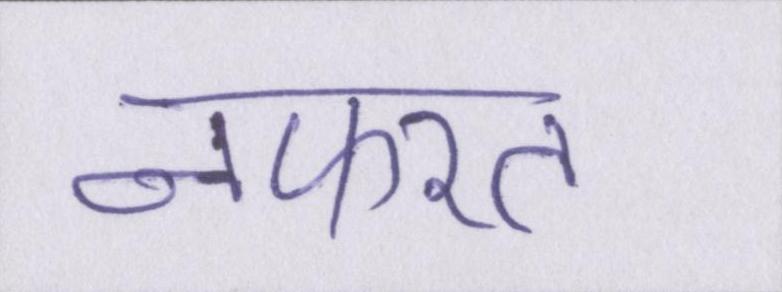 नफरत